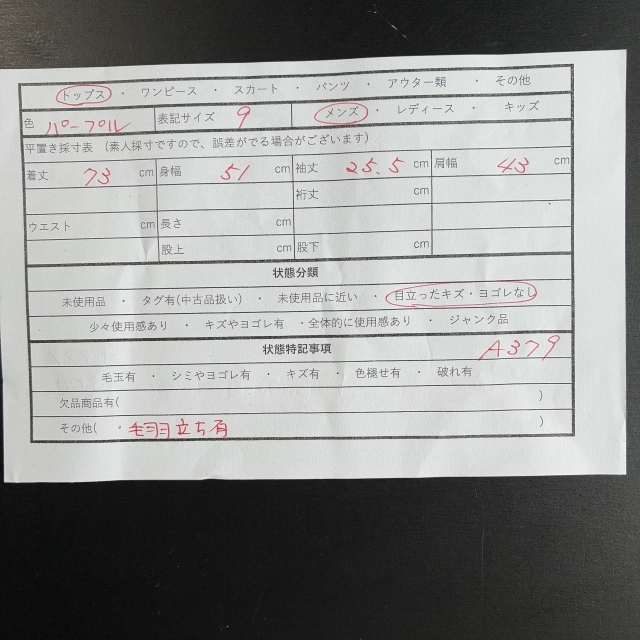 トップス ・ ワンピース ・ スカート ・ パンツ ・ アウター類 ・ その他
色 パープル 表記サイズ 9 メンズ ・ レディース ・ キッズ
平置き採寸表 (素人採寸ですので、誤差がでる場合がございます)
着丈 73 cm 身幅 51 cm 袖丈 25.5 cm 肩幅 43 cm
裄丈 cm
ウエスト cm 長さ cm
股上 cm 股下 cm
状態分類
未使用品 ・ タグ有(中古品扱い) ・ 未使用品に近い ・ 目立ったキズ・ヨゴレなし
少々使用感あり ・ キズやヨゴレ有 ・全体的に使用感あり ・ ジャンク品
状態特記事項 A379
毛玉有 ・ シミやヨゴレ有 ・ キズ有 ・ 色褪せ有 ・ 破れ有
欠品商品有( )
その他( ・毛羽立ち有 )